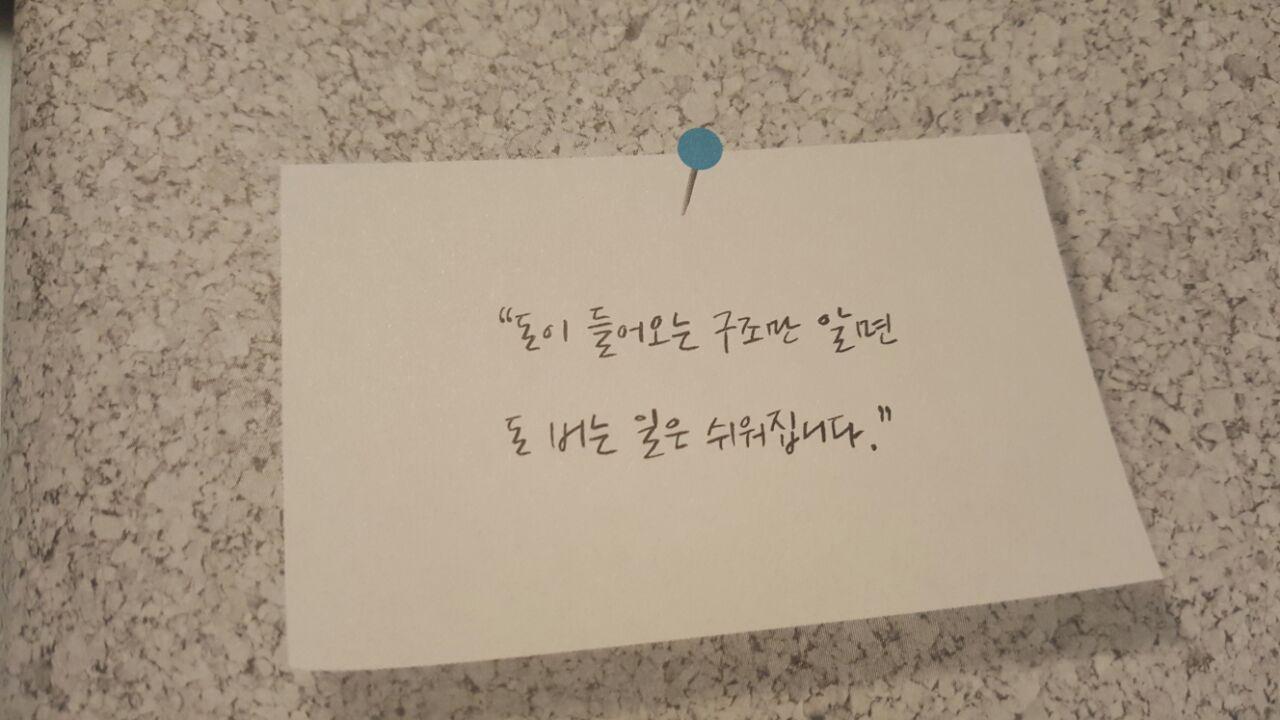 “돈이 들어오는 구조만 알면
돈 버는 일은 쉬워집니다.”